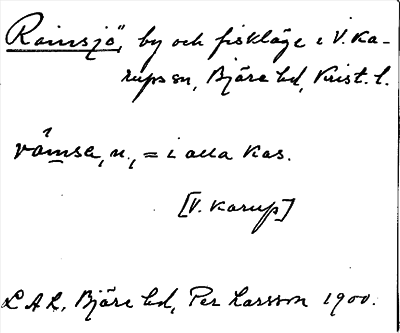 Ramsjö, by och fiskläge i V. Ka-
rups sn, Bjäre hd, Krist. l.
râmse, n., = i alla kas.
[V. Karup]
L A L, Bjäre hd, Per Larsson 1900.